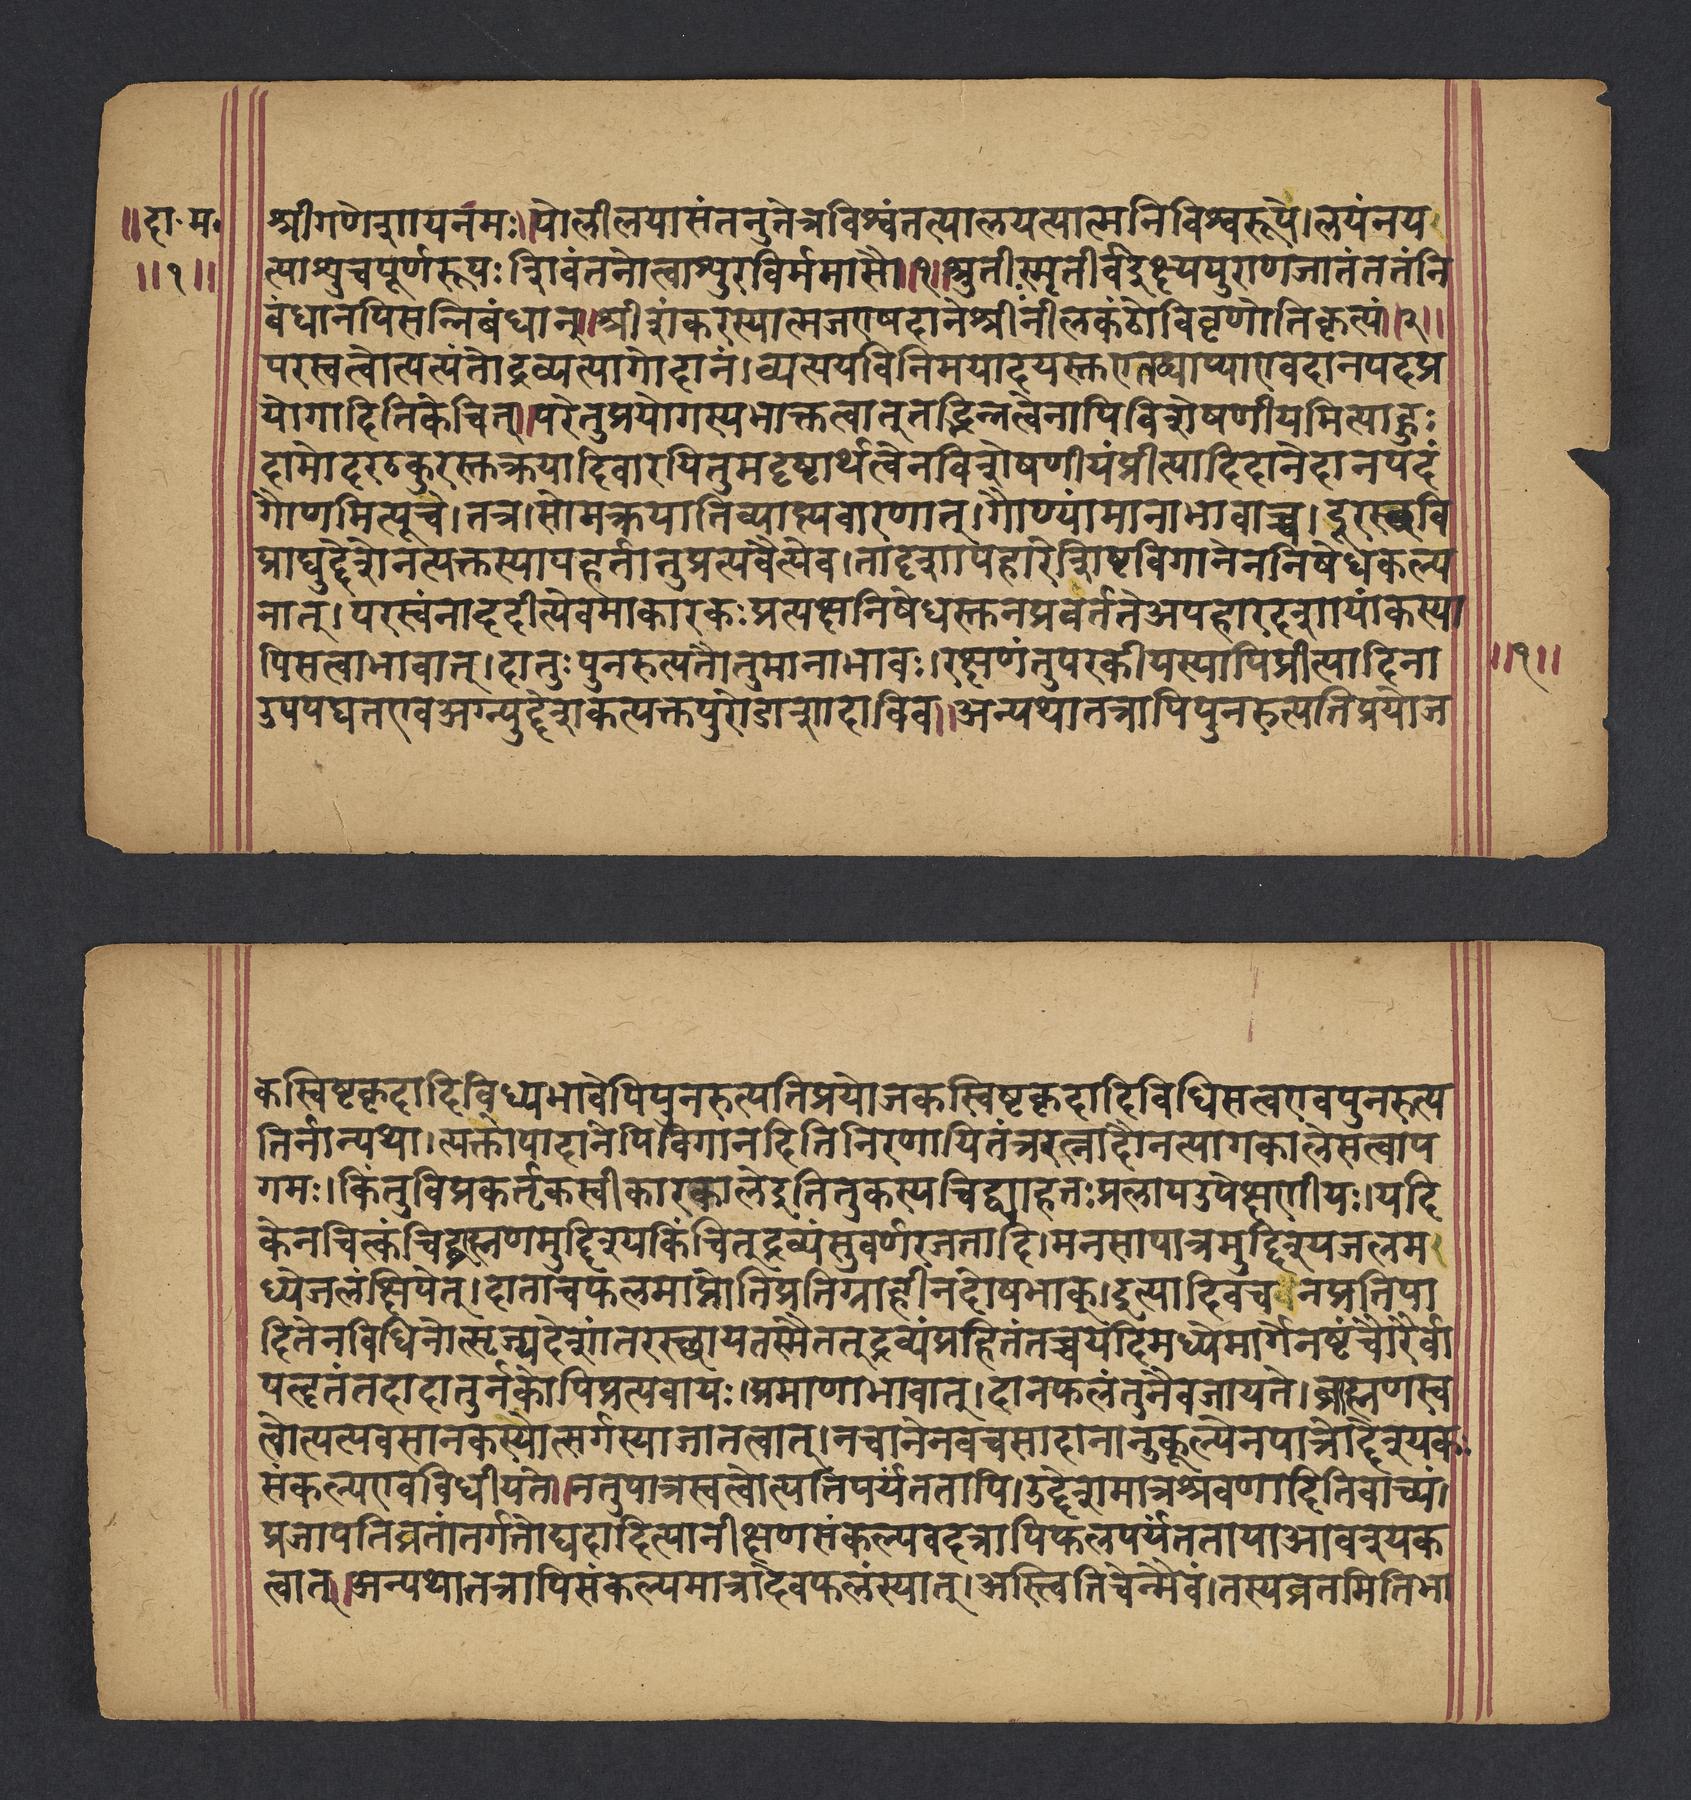 ॥दा॰म॰
॥१॥
श्रीगणेशायनमः॥योलीलयासंतनुतेत्रविश्वंतत्पालयत्यात्मनिविश्वरूपे।लयंनय
त्याशुचपूर्णरूपः शिवंतनोत्वाशुरविर्ममासौ॥१॥श्रुतीःस्मृतीर्वदुक्ष्यपुराणजातंततंनि
बंधानपिसन्निबंधान्॥श्रीशंकरस्यात्मजएषदानेश्रीनीलकंठोविवृणोतिकृत्यं॥२॥
परस्वत्वोत्पत्यंतोद्रव्यत्यागोदानं।व्यत्ययविनिमयादयस्तुएतद्याप्याएवदानपदप्र
योगादितिकेचित्॥परेतुप्रयोगस्यभाक्तत्वात्तद्भिन्नत्वेनापिविशेषणीयमित्याहुः
दामोदरठकुरस्तुक्रयादिवारयितुमदृष्टार्थत्वेनविशेषणीयंप्रीत्यादिदानेदानपदं
गौणमित्यूचे।तन्न।सोमक्रयातिव्याह्यवारणात्।गौण्यांमानाभावाच्च।दूरस्थवि
प्राद्युद्देशेनत्यक्तस्यापहर्तातुप्रत्यवैत्येव।तादृशापहारेशिष्टविगानेननिषेधकल्प
नात्।परस्वंनाददीत्येवमाकारकःप्रत्यक्षनिषेधस्तुनप्रवर्ततेअपहारदशायांकस्या
पिसत्वाभावात्।दातुःपुनरुत्पतौतुमानाभावः।रक्षणंतुपरकीयस्यापिप्रीत्यादिना
उपपद्यतएवअग्न्युद्देशकत्यक्तपुरोडाशादाविव॥अन्यथातत्रापिपुनरुत्पतिप्रयोज
॥१॥
कस्विष्टकृदादिविध्यभावेपिपुनरुत्पतिप्रयोजकस्विष्टकृदादिविधिसत्वएवपुनरुत्प
तिर्नान्यथा।त्यक्तोपादानेपिविगानदितिनिरणायितंत्ररत्नादौनत्यागकालेसत्वाप
गमः।किंतुविप्रकर्तृकस्वीकारकालेइतितुकस्यचिद्व्याहतःप्रलापउपेक्षणीयः।यदि
केनचित्कंचिद्ब्राह्मणमुद्दिश्यकिंचित्द्रव्यंसुवर्णरजतादि।मनसापात्रमुद्दिश्यजलम
ध्येजलंक्षिपेत्।दाताचफलमाप्नोतिप्रतिग्राहीनदोषभाक्।इत्यादिवचनप्रतिपा
दितेनविधिनोत्सृज्यदेशांतरस्छायतस्मैतत्द्रव्यंप्रहितंतच्चयदिमध्येमार्गेनष्टंचौरैर्वा
पत्दृतंतदादातुर्नकोपिप्रत्यवायः।प्रमाणाभावात्।दानफलंतुनैवजायते।ब्राह्मणस्व
त्वोत्पत्यवसानकस्योत्सर्गस्याजातत्वात्।नचानेनवचसादानानुकूल्येनपात्रोद्देश्यकः
संकल्पएवविधीयते॥नतुपात्रस्वत्वोत्पत्तिपर्यंततापि।उद्देशमात्रश्रवणादितिवाच्यं।
प्रजापतिव्रतांतर्गतोद्यदादित्यानीक्षणसंकल्पवदत्रापिफलपर्यंततायाआवश्यक
त्वात्॥अन्यथातत्रापिसंकल्पमात्रादेवफलंस्यात्।अस्त्वितिचेन्मैवं।तस्यव्रतमितिभा